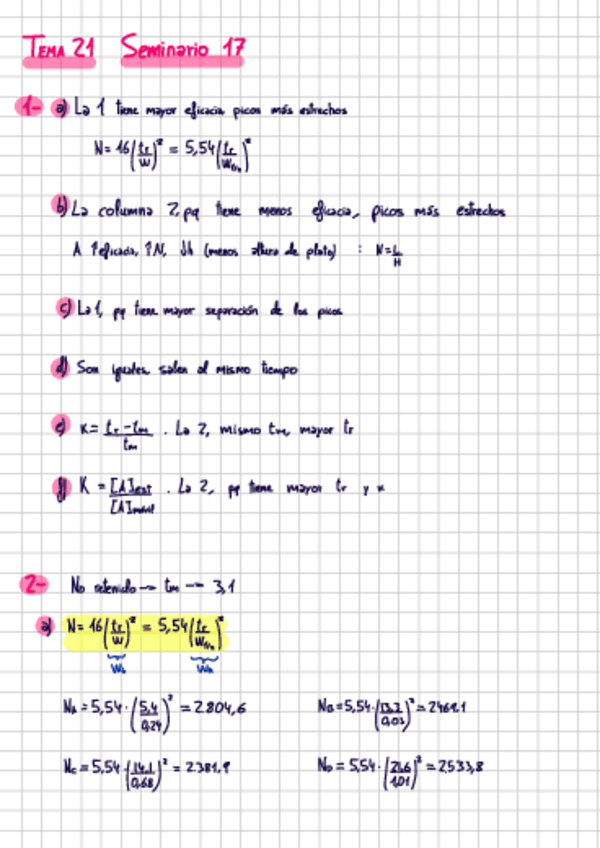 TEMA 21 Seminario 17
1- a) La 1 tiene mayor eficacia, picos más estrechos
N = 16 (tr/W)² = 5,54 (tr/W½)²
b) La columna 2, pq tiene menos eficacia, picos más estrechos
A ↑eficacia, ↑N, ↓h (menos altura de plato) : N = L/H
c) La 1, pq tiene mayor separación de los picos
d) Son iguales, salen al mismo tiempo
e) K = tr - tm / tm . La 2, mismo tm, mayor tr
f) K = [A]est / [A]móvil . La 2, pq tiene mayor tr y K
2- No retenido → tm → 3,1
a) N = 16 (tr/W)² = 5,54 (tr/W½)²
NA = 5,54 · (5,4/0,24)² = 2804,6 NB = 5,54 · (13,3/)² = 2461,1
NC = 5,54 · (14,1/0,68)² = 2381,9 ND = 5,54 · (21,6/1,01)² = 2533,8